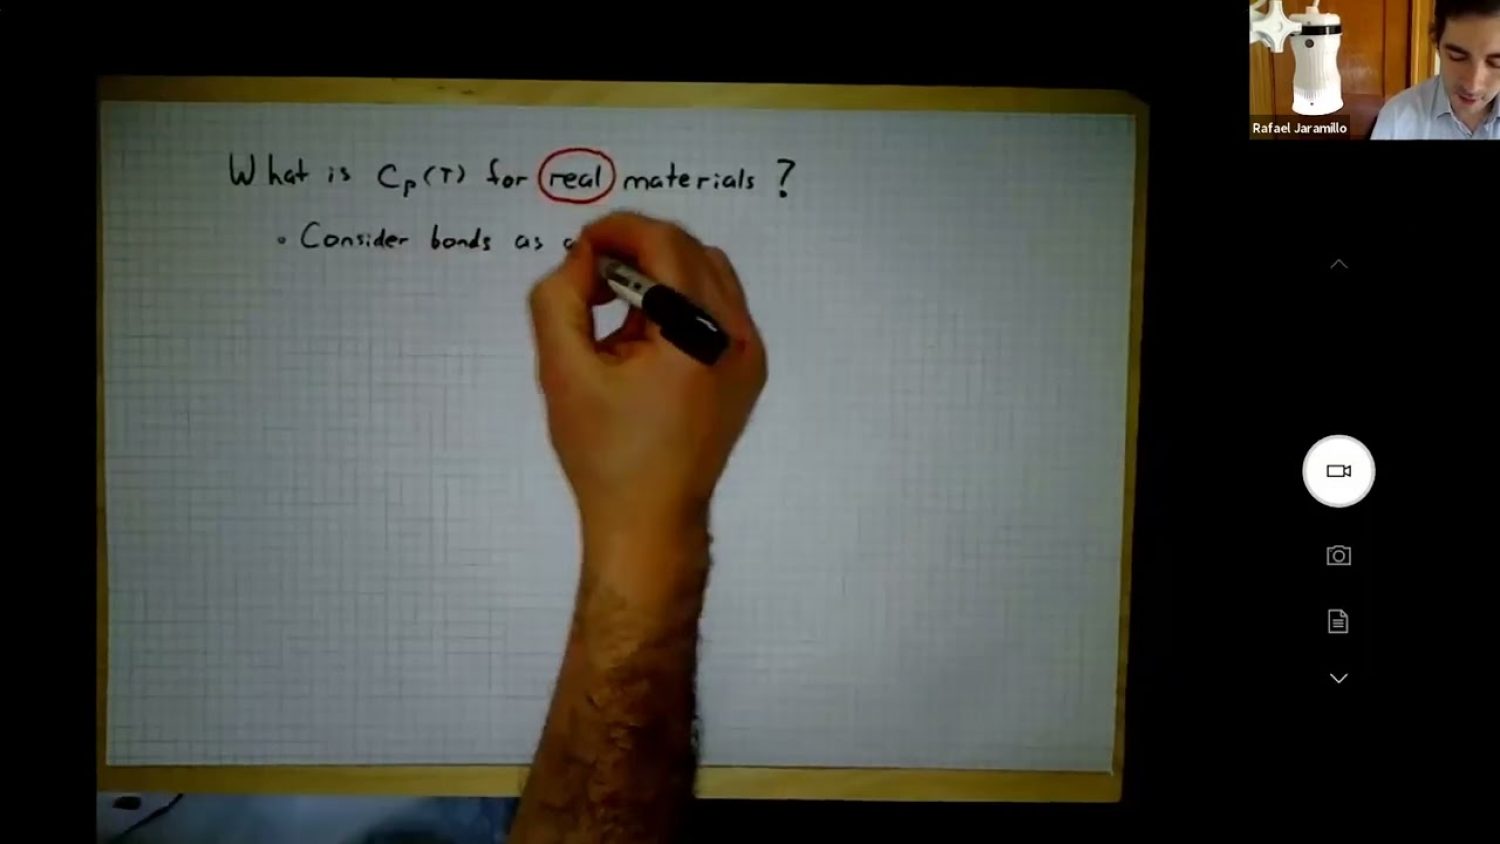 Rafael Jaramillo
What is Cp(T) for real materials ?
• Consider bonds as